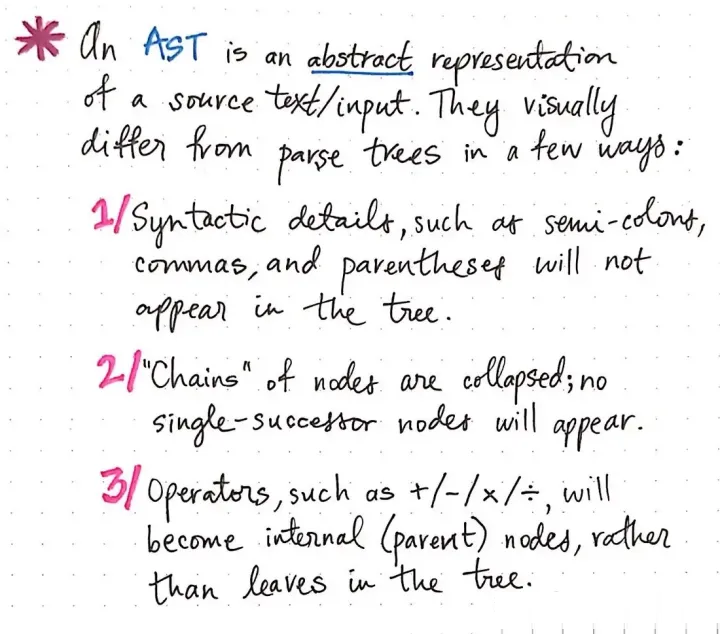 * An AST is an abstract representation
of a source text/input. They visually
differ from parse trees in a few ways:
1/ Syntactic details, such as semi-colons,
commas, and parentheses will not
appear in the tree.
2/ "Chains" of nodes are collapsed; no
single-successor nodes will appear.
3/ Operators, such as +/-/×/÷, will
become internal (parent) nodes, rather
than leaves in the tree.